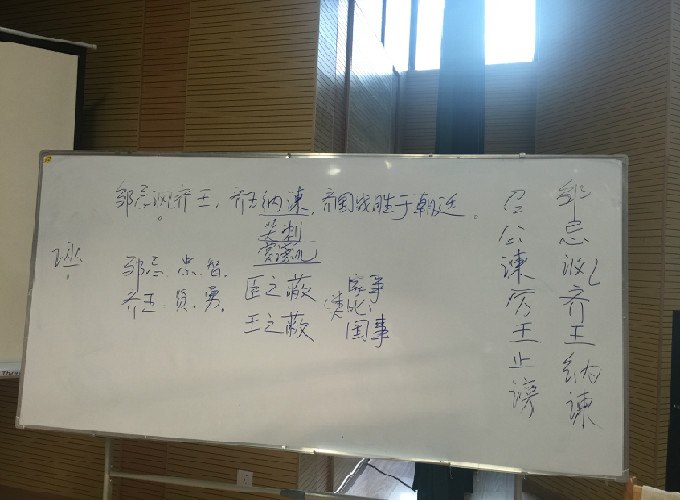 邹忌讽齐王，齐王纳谏，齐国战胜于朝廷。
邹忌 忠智
齐王 贤勇
臣之蔽
王之蔽
家事
类比
国事
邹忌讽齐王纳谏
召公谏厉王止谤